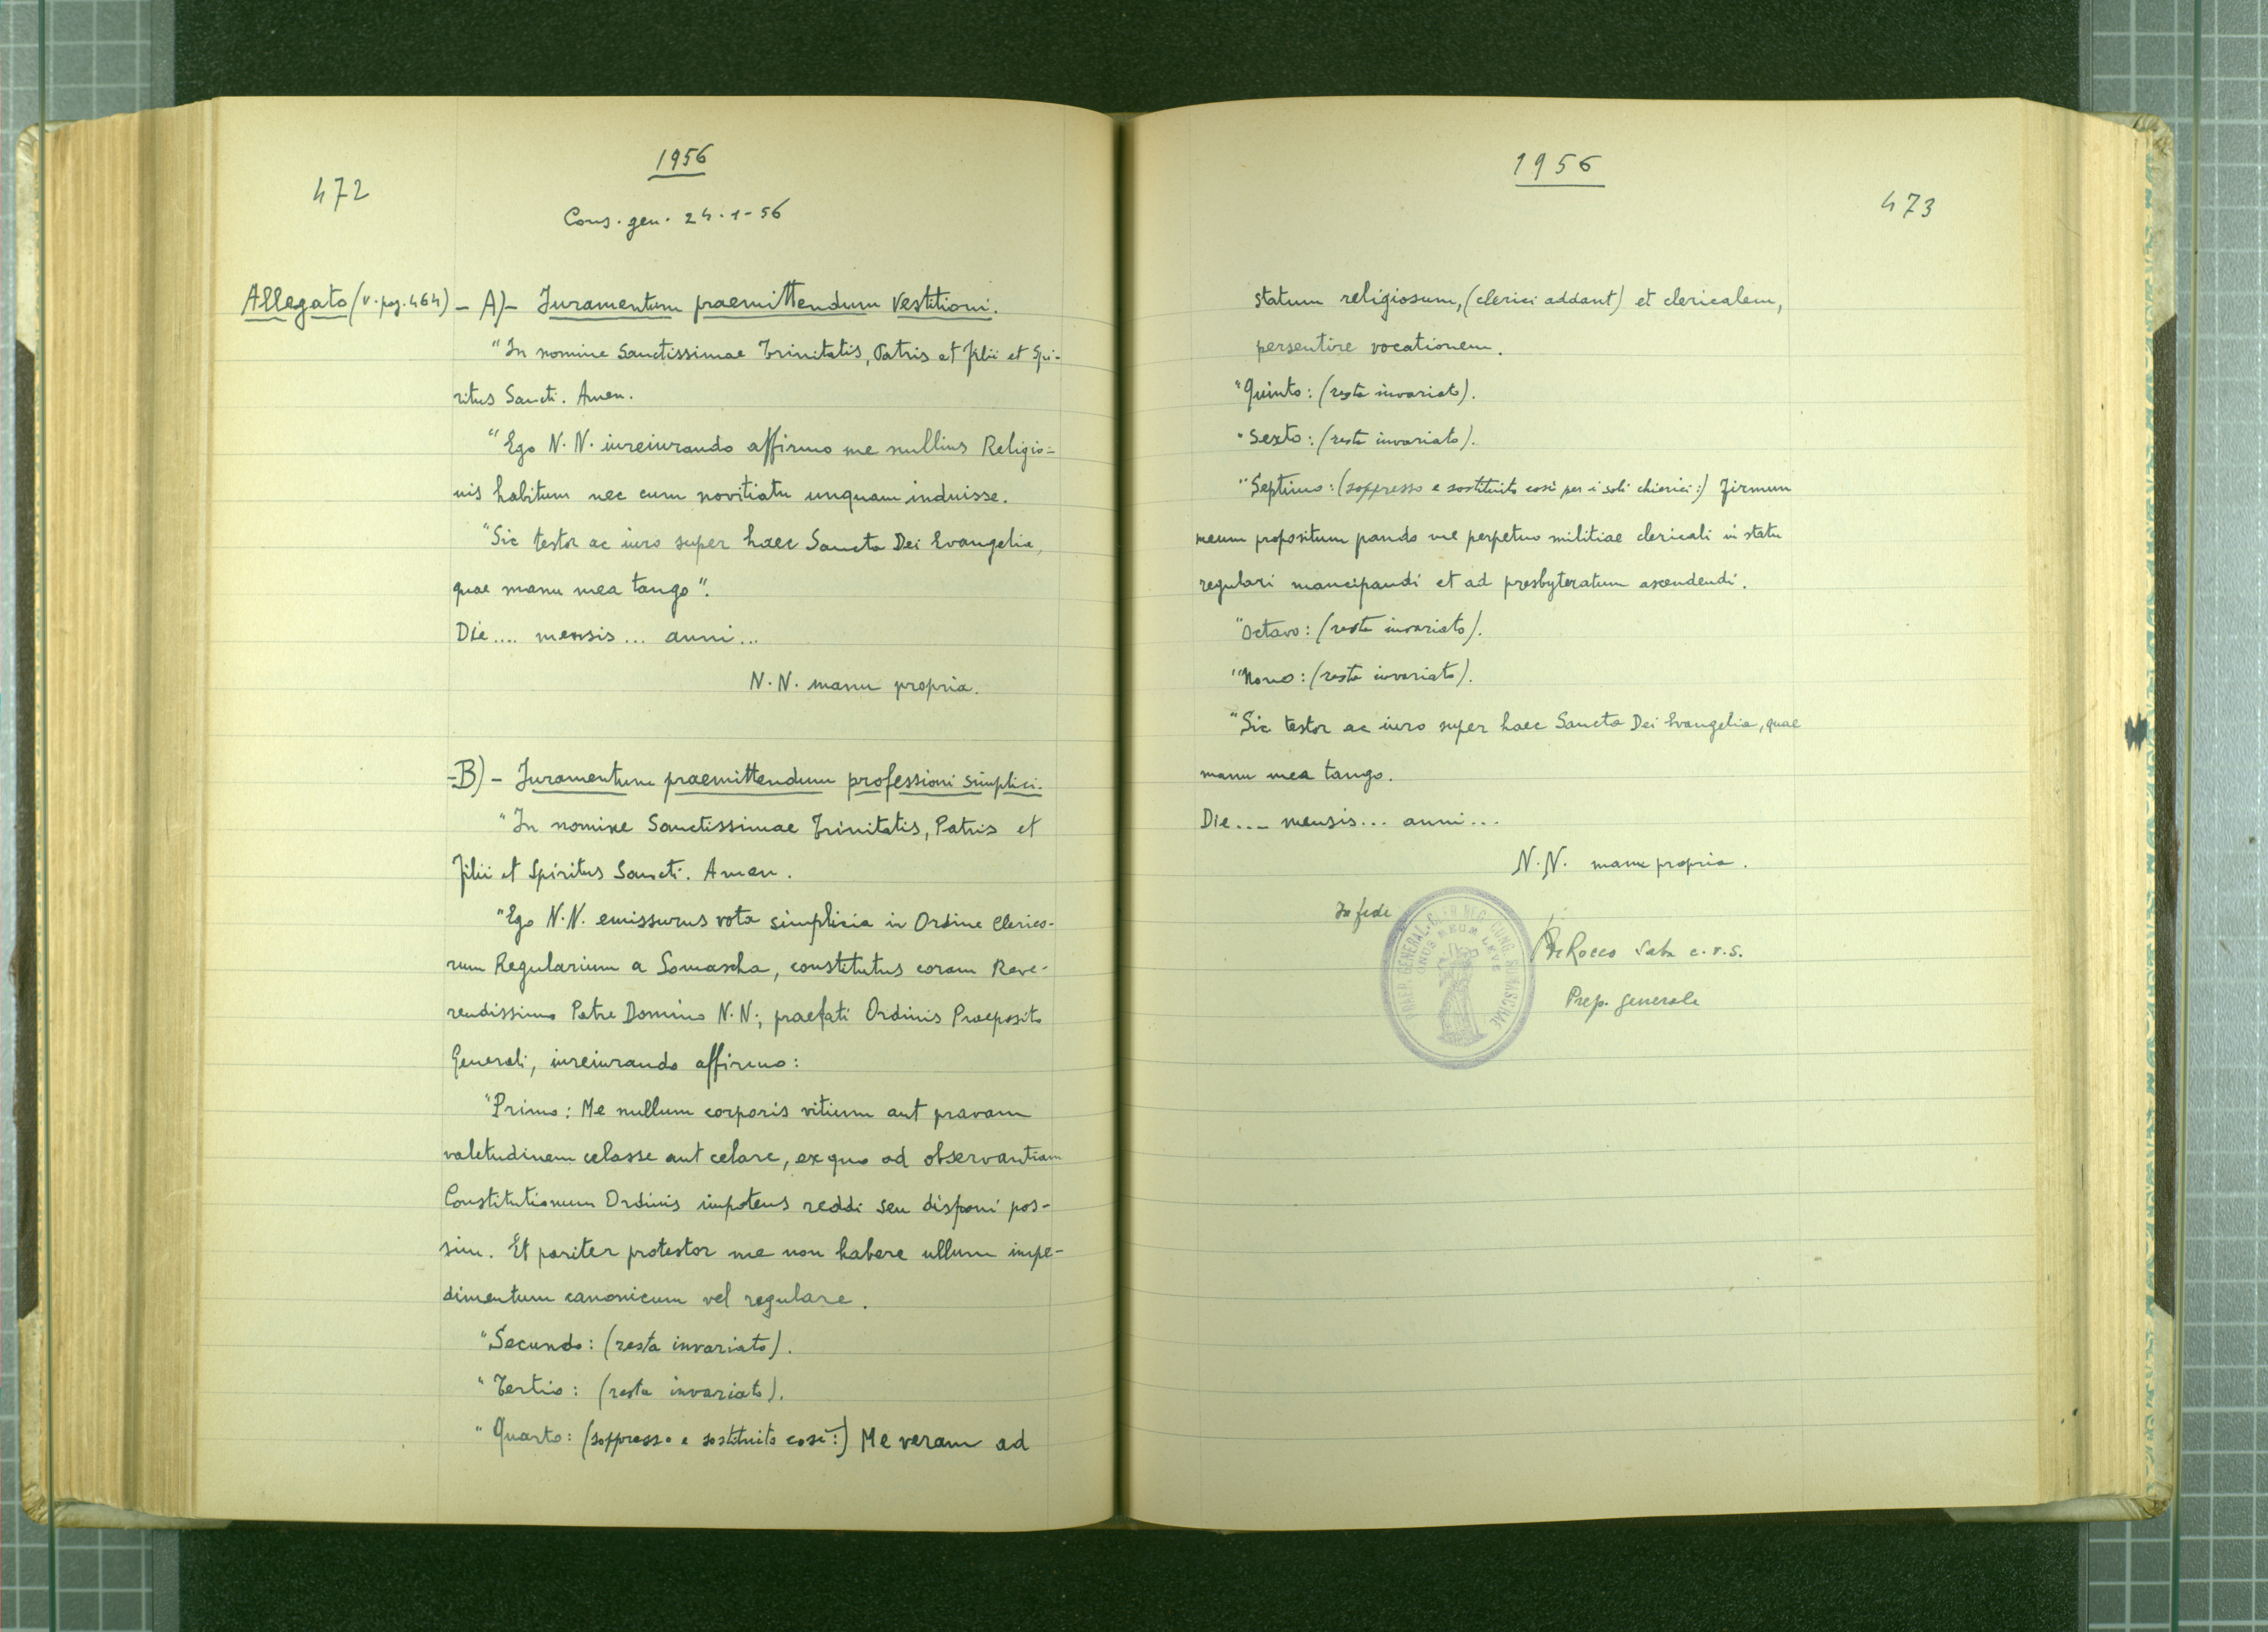 472
1956
Cons. gen. 24-1-56
Allegato (v. pag. 464) - A) - Juramentum praemittendum Vestitioni.
"In nomine Sanctissimae Trinitatis, Patris et Filii et Spi-
ritus Sancti. Amen.
"Ego N. N. iureiurando affirmo me nullius Religio-
nis habitum nec cum novitiatu unquam induisse.
"Sic testor ac iuro super haec Sancta Dei Evangelia,
quae manu mea tango".
Die .... mensis ... anni ...
N. N. manu propria.
- B) - Juramentum praemittendum professioni simplici.
"In nomine Sanctissimae Trinitatis, Patris et
Filii et Spiritus Sancti. Amen.
"Ego N. N. emissurus vota simplicia in Ordine Clerico-
rum Regularium a Somascha, constitutus coram Reve-
rendissimo Patre Domino N. N., praefati Ordinis Praeposito
Generali, iureiurando affirmo:
"Primo: Me nullum corporis vitium aut pravam
valetudinem celasse aut celare, ex quo ad observantiam
Constitutionum Ordinis impotens reddi seu disponi pos-
sim. Et pariter protestor me non habere ullum impe-
dimentum canonicum vel regulare.
"Secundo: (resta invariato).
"Tertio: (resta invariato).
"Quarto: (soppresso e sostituito così:) Me veram ad
1956
473
statum religiosum, (clerici addant) et clericalem,
persentire vocationem.
"Quinto: (resta invariato).
"Sexto: (resta invariato).
"Septimo: (soppresso e sostituito così per i soli chierici:) Firmum
meum propositum pando me perpetuo militiae clericali in statu
regulari mancipandi et ad presbyteratum ascendendi.
"Octavo: (resta invariato).
"Nono: (resta invariato).
"Sic testor ac iuro super haec Sancta Dei Evangelia, quae
manu mea tango.
Die .... mensis ... anni ...
N. N. manu propria.
In fede
PRAEP. GENERAL. CLER. REG. CONG. SOMASCHAE
ONUS MEUM LEVE
Rocco Saba c.r.s.
Prep. generale